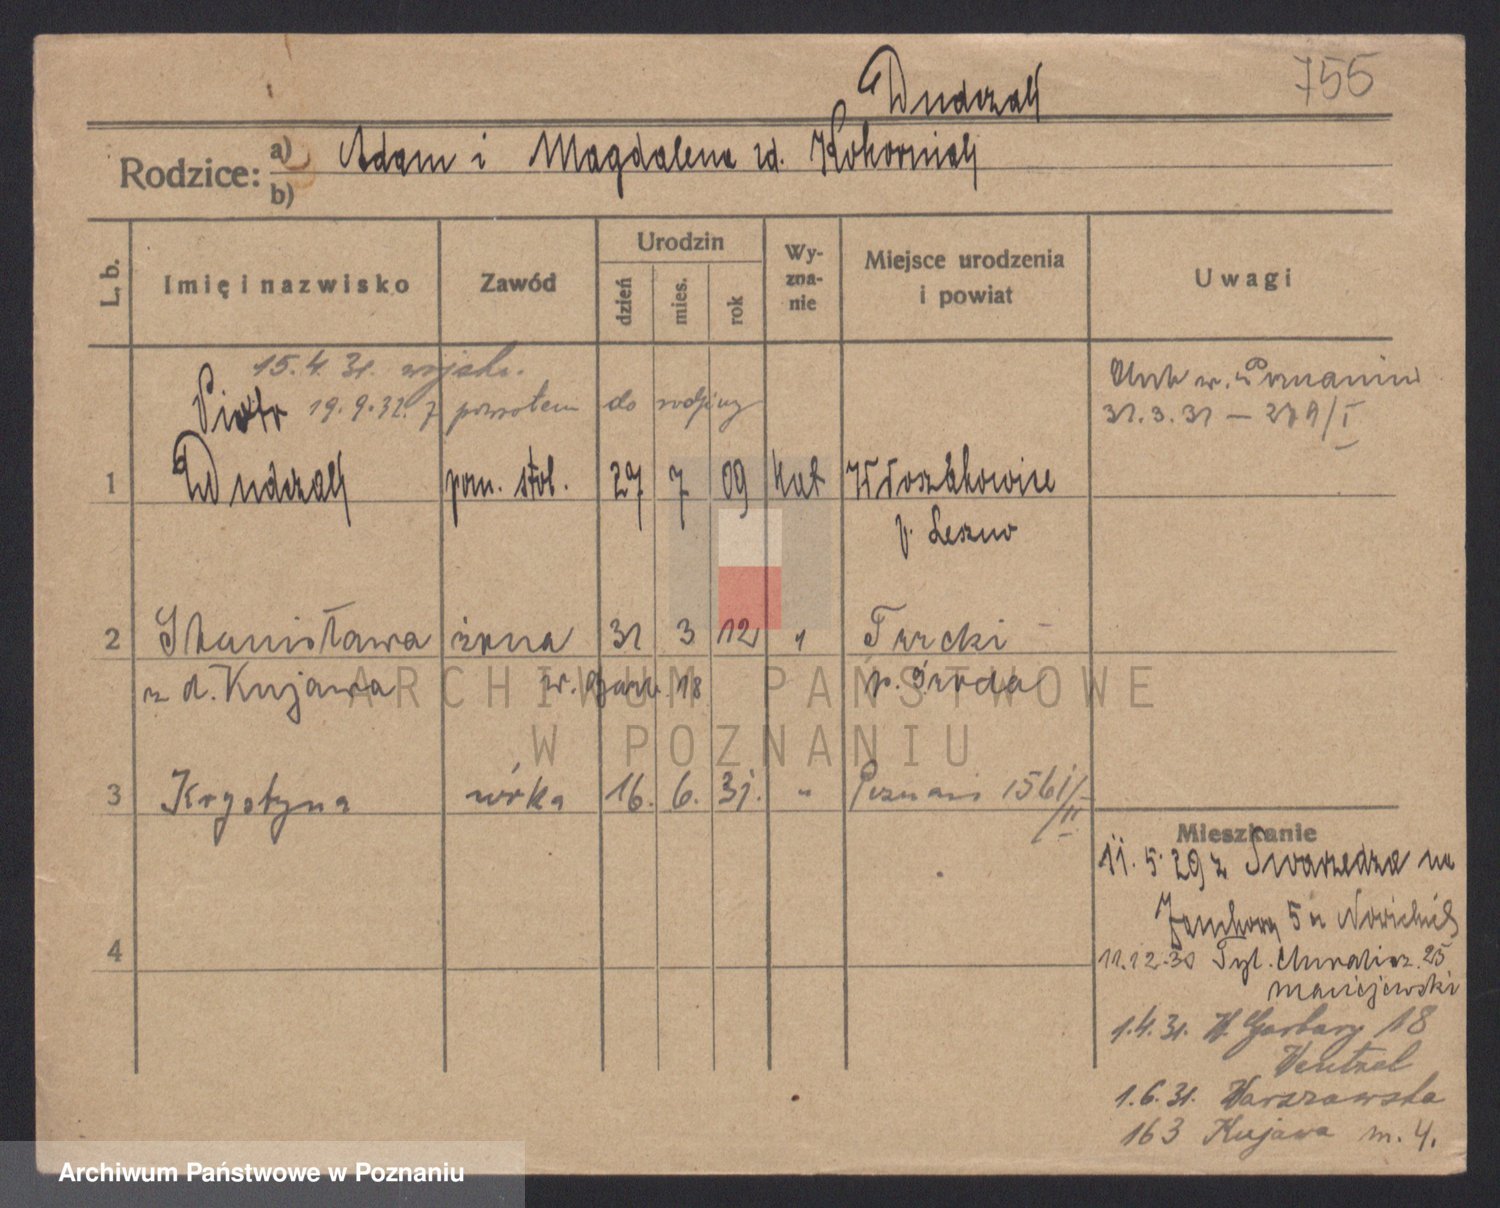 755
Dudzak
Rodzice: a) Adam i Magdalena zd. Kokorniak
b)
L. b. Imię i nazwisko Zawód Urodzin dzień mies. rok Wy-zna-nie Miejsce urodzenia i powiat Uwagi
15.4.31. wojsk.
Piotr 19.9.32. z powrotem do rodziny
ślub w. Poznaniu
31.3.31 — 279/I
1 Dudzak pom. stol. 27 7 09 kat Włoszakowice
p. Leszno
2 Stanisława żona 31 3 12 " Turcki
z d. Kujawa w. Garb. 18 p. Środa
ARCHIWUM PAŃSTWOWE
W POZNANIU
3 Krystyna córka 16. 6. 31. " Poznań 1561/
/II
Mieszkanie
11.5.29 z Swarzędza na
5 u
4
11.12.30 25
Maciejewski
1.4.31. W. Garbary 18
Wentzel
1.6.31. Warszawska
163 Kujawa m. 4.
Archiwum Państwowe w Poznaniu